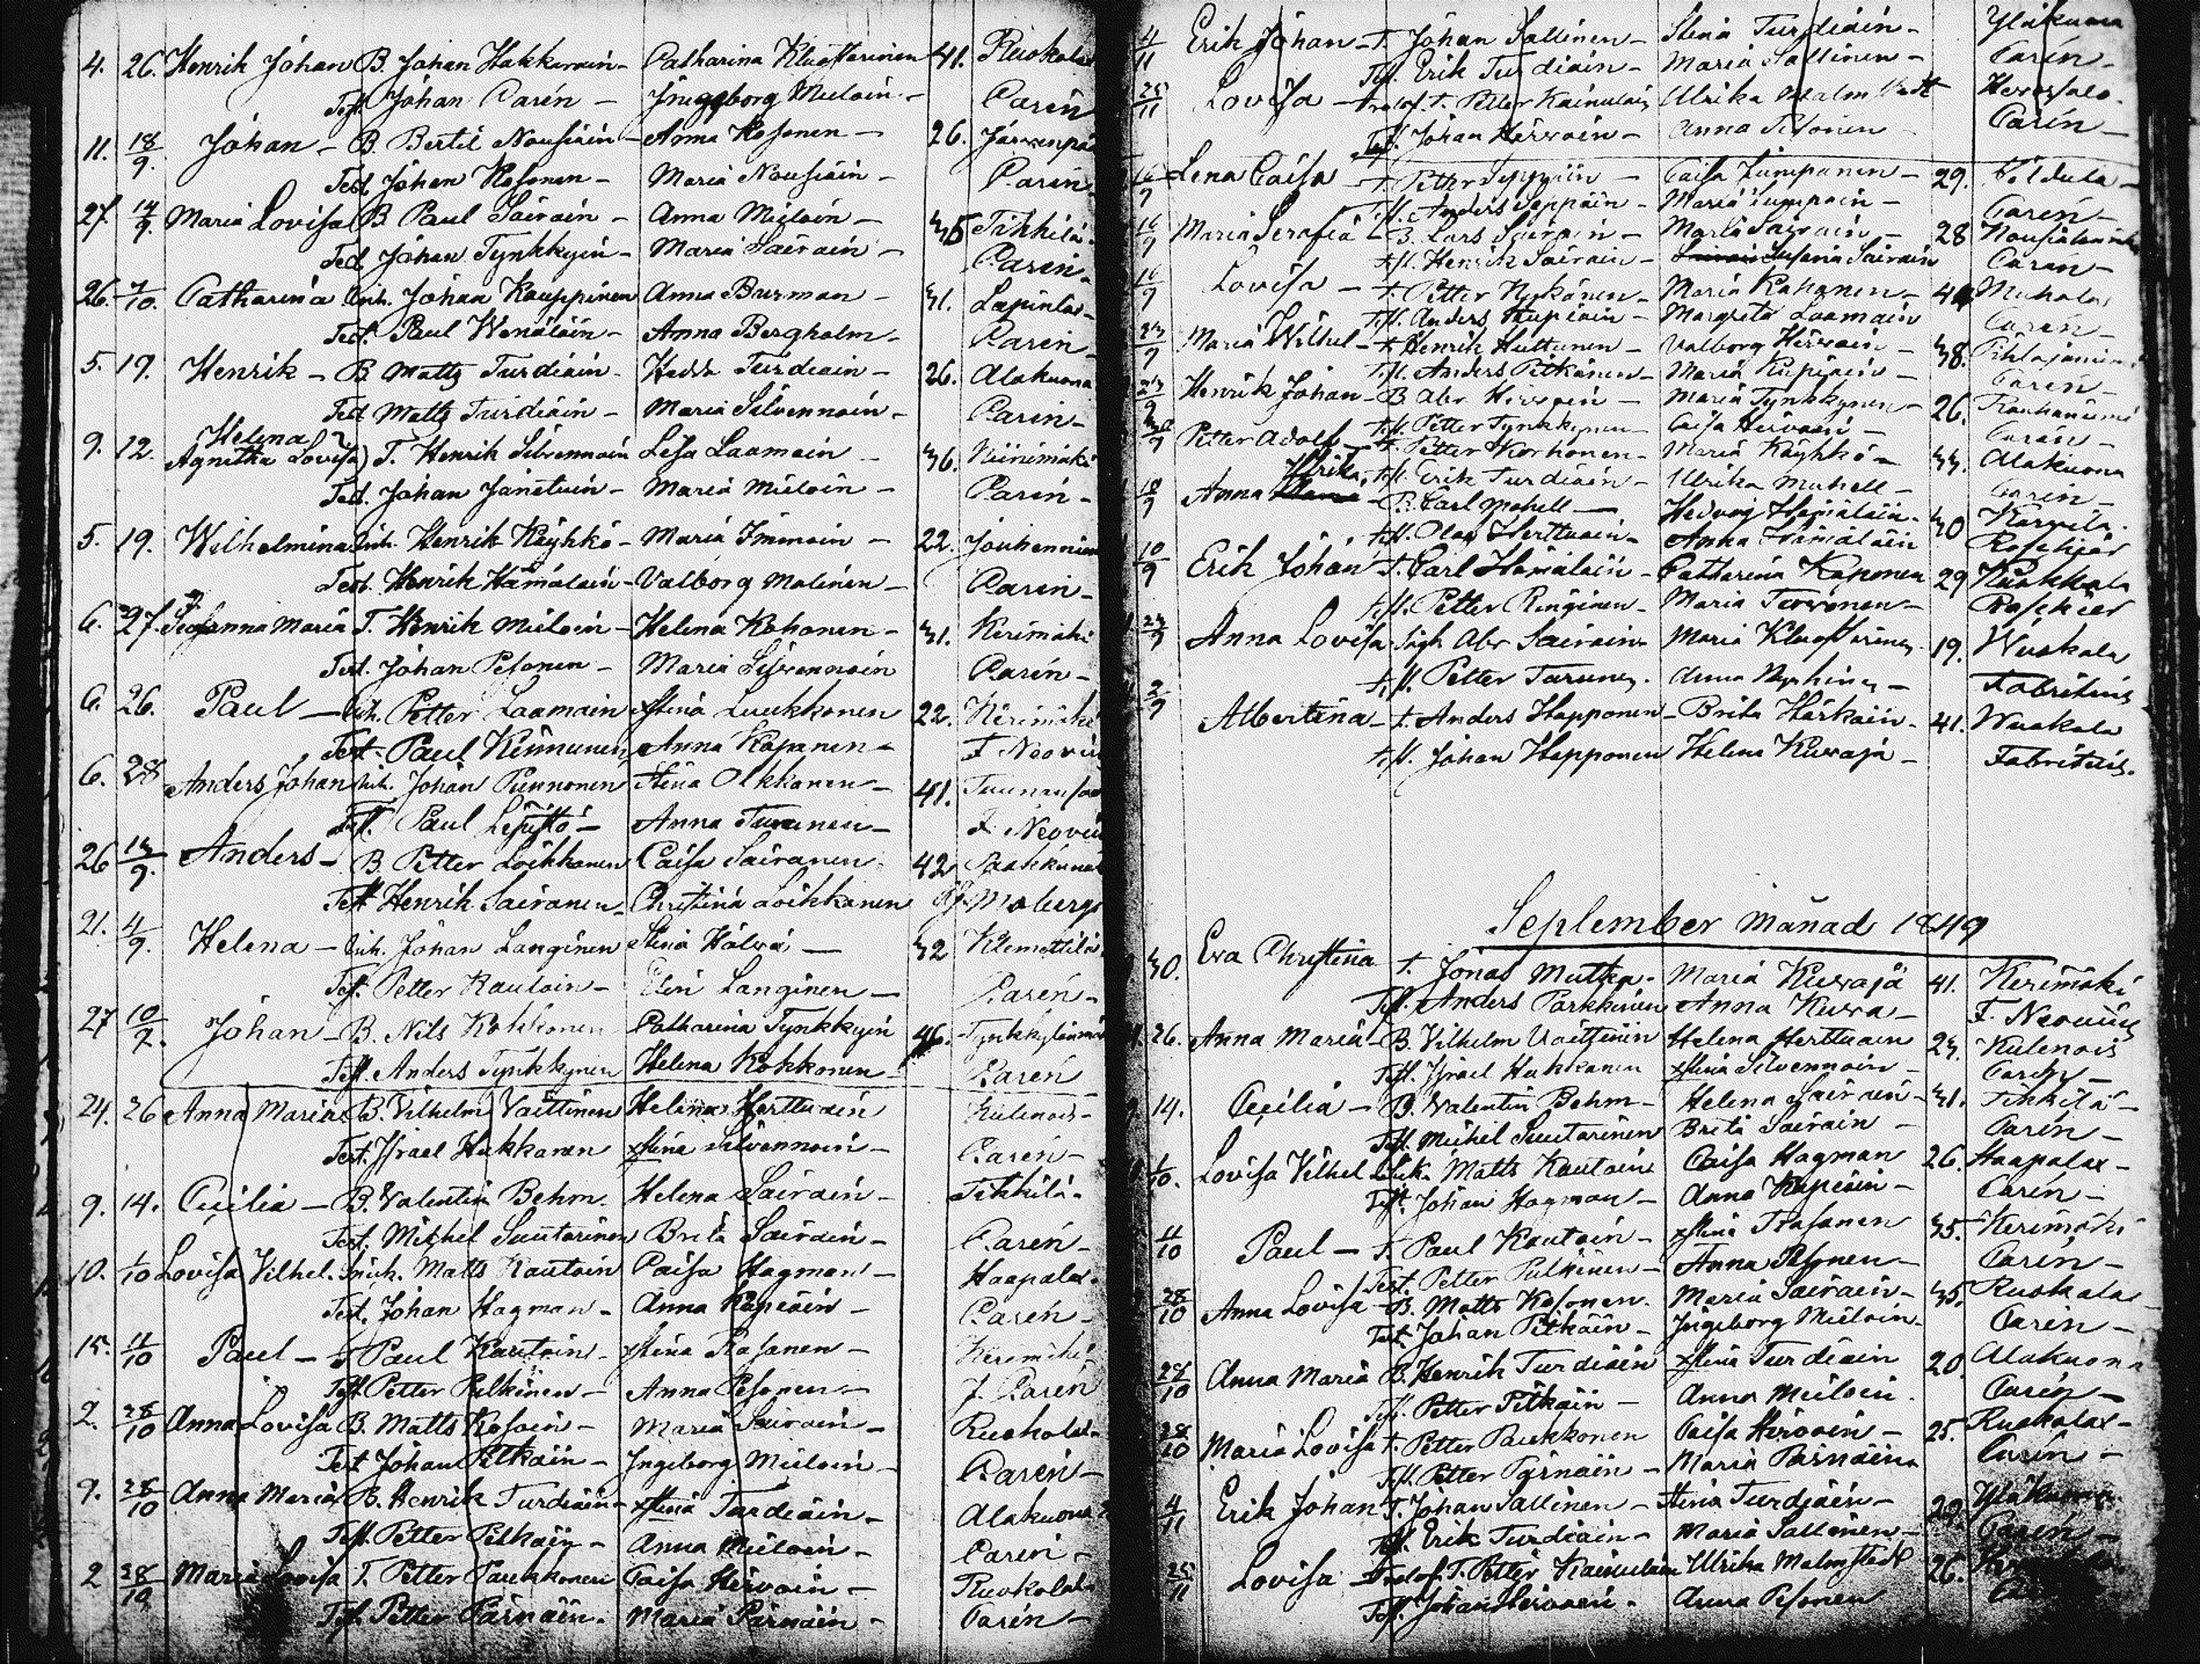 4. 26. Henrik Johan B. Johan Hakkarain - Catharina Kluuttarinen 41. Ruokola
Test Johan Parén - Inggborg Mieloin - Carén
11. 18/9. Johan - B. Bertil Nousiain - Anna Kosonen - 26. Järvenpää
Test Johan Kosonen - Maria Nousiain - Carén
27. 14/9. Maria Lovisa B. Paul Sairain - Anna Mieloin - 35 Tikkilä
Test Johan Tynkkyin - Maria Sairain - Carén
26. 7/10. Catharina Inh. Johan Kauppinen Anna Burman - 31. Lapinlax
Test. Paul Wenäläin - Anna Bergholm - Carén
5. 19. Henrik - B. Matts Turdiain - Hedda Turdiain - 26. Alakuona
Test Matts Turdiain - Maria Silvennoin - Carén
Helena
9. 12. Agnetha Lovisa T. Henrik Silvennoin Lisa Laamain - 36. Niinimäki
Test. Johan Jänetuin - Maria Mieloin - Carén -
5. 19. Wilhelmina Inh. Henrik Käyhkö - Maria Immoin - 22. Jouhenniemi
Test. Henrik Hämäläin - Valborg Malinen - Carén -
6. 27. Susanna Maria T. Henrik Mieloin - Helena Kohonen - 31. Kerimäki
Test. Johan Pesonen - Maria Silvennoin Carén -
6. 26. Paul - Inh. Petter Laamain Stina Luukkonen 22. Kerimäki
Test. Paul Kinnunen Anna Kapanen - F Neovius
6. 28 Anders Johan Inh. Johan Punnonen Stina Olkkonen - 41.
Test. Paul Anna Turunen - F. Neovius
26 13/9. Anders - B. Petter Loikkanen Caisa Sairanen 42
Test Henrik Sairanen - Christina Loikkanen Moberg
21. 4/9. Helena - Inh. Johan Langinen Stina Hälvä - 32 Klemettilä
Test. Petter Rautain - Elin Langinen - Carén -
27 10/9. Johan - B. Nils Kokkonen Catharina Tynkkyin 46. Tynkkylänmäki
Test. Anders Tynkkynen Helena Kokkonen - Carén
24. 26 Anna Maria B. Vilhelm Vaittinen Helena Herttuain Kulenois -
Test. Israel Hakkanen Stina Silvennoin - Carén -
9. 14. Cecilia - B. Valentin Behm - Helena Sairain - Tikkilä -
Test. Michel Suutarinen Brita Sairain - Carén -
10. 1/10 Lovisa Vilhel. Inh. Matts Rautain Caisa Hagman - Haapalax -
Test. Johan Hagman - Anna Kupiain - Carén -
15. 11/10 Paul - T Paul Rautain - Stina Rasanen - Kerimäki
Test Petter Pulkinen - Anna Pesonen - F. Carén
2. 28/10 Anna Lovisa B. Matts Kosoin - Maria Sairain - Ruokolax -
Test Johan Pitkäin - Ingeborg Mieloin - Carén -
9. 28/10 Anna Maria B. Henrik Turdiain - Stina Turdiain - Alakuona
Test. Petter Pitkäin - Anna Mieloin - Carén -
2 28/10 Maria Lovisa T. Petter Paukkonen Caisa Hirvoin - Ruokolax
Test. Petter Pärnäin - Maria Pärnäin - Carén -
4/11 Erik Johan - T. Johan Sallinen - Stina Turdiain - Yläkuona
Test. Erik Turdiain - Maria Sallinen - Carén -
25/11 Lovisa - T. Petter Kainulain Ulrika Malmstedt Hevossalo.
Test. Johan Hirvoin - Anna Pesonen - Carén -
16/9 Lena Caisa - T. Petter Seppäin - Caisa Zumpanen - 29.
Test. Anders Seppäin - Maria Zumpain - Carén -
16/9 Maria Serafia - B. Lars Sairain - Maria Sairain - 28
Test. Henrik Sairain - Susana Sairain Carén -
16/9 Lovisa - T. Petter Nykänen - Maria Kapanen - 44 Muhola
Test. Anders Kupiain - Margreta Laamain Carén -
23/9 Maria Wilhel - T. Henrik Huttunen - Valborg Hirvoin - 38. Pihlajaniemi
Test. Anders Pitkänen - Maria Kupiain - Carén -
23/9 Henrik Johan - B. Abr Hirvoin - Maria Tynkkynen - 26. Rauhaniemi
Test. Petter Tynkkynen - Caisa Hirvoin - Carén -
30/9 Petter Adolf - T. Petter Korhonen - Maria Käyhkö - 33. Alakuona
Ulrika Test. Erik Turdiain - Ulrika Mahell - Carén -
18/9 Anna - B. Carl Mahell - Hedvig Hämäläin - 30 Karvila.
Test. Olof Herttuain - Anna Hämäläin Roschier
10/9 Erik Johan T. Carl Hämäläin - Catharina Kaponen 29 Kuokkala
Test. Petter Ringinen - Maria Tervonen - Roschier
23/9 Anna Lovisa - Abr Sairain - Maria Kluuttarinen 19. Wuokala
Test. Petter Turunen. Anna Nyhinen - Fabritius
2/9 Albertina - T. Anders Happonen - Brita Härkäin - 41. Wuokala
Test. Johan Happonen Helena Kuvaja - Fabritius.
September Månad 1849
30. Eva Christina T. Jonas Mutka - Maria Kuvaja 41. Kerimäki
Test. Anders Parkkinen Anna Kuva - F. Neovius
26. Anna Maria - B. Vilhelm Vaittinin Helena Herttuain 23. Kulenois
Test. Israel Hakkanen Stina Silvennoin - Carén -
14. Cecilia - B. Valentin Behm - Helena Sairain - 31. Tikkilä -
Test. Michel Suutarinen Brita Sairain - Carén -
1/10. Lovisa Vilhel Inh. Matts Rautain Caisa Hagman 26. Haapalax -
Test. Johan Hagman - Anna Kupiain - Carén -
11/10 Paul - T. Paul Rautain - Stina Rasanen 35. Kerimäki
Test. Petter Pulkinen - Anna Pesonen - Carén -
28/10 Anna Lovisa - B. Matts Kosonen. Maria Sairain - 35. Ruokolax
Test Johan Pitkäin - Ingeborg Mieloin - Carén -
28/10 Anna Maria B. Henrik Turdiain Stina Turdiain 20. Alakuona
Test. Petter Pitkäin - Anna Mieloin. Carén -
28/10 Maria Lovisa T. Petter Paukkonen Caisa Hirvoin - 25. Ruokolax -
Test. Petter Pärnäin - Maria Pärnäin Carén -
4/11 Erik Johan T. Johan Sallinen - Stina Turdiain - 29. Yläkuona
Test. Erik Turdiain - Maria Sallinen - Carén -
25/11 Lovisa - T. Petter Kainulain Ulrika Malmstedt 26.
Test. Johan Hirvoin - Anna Pesonen